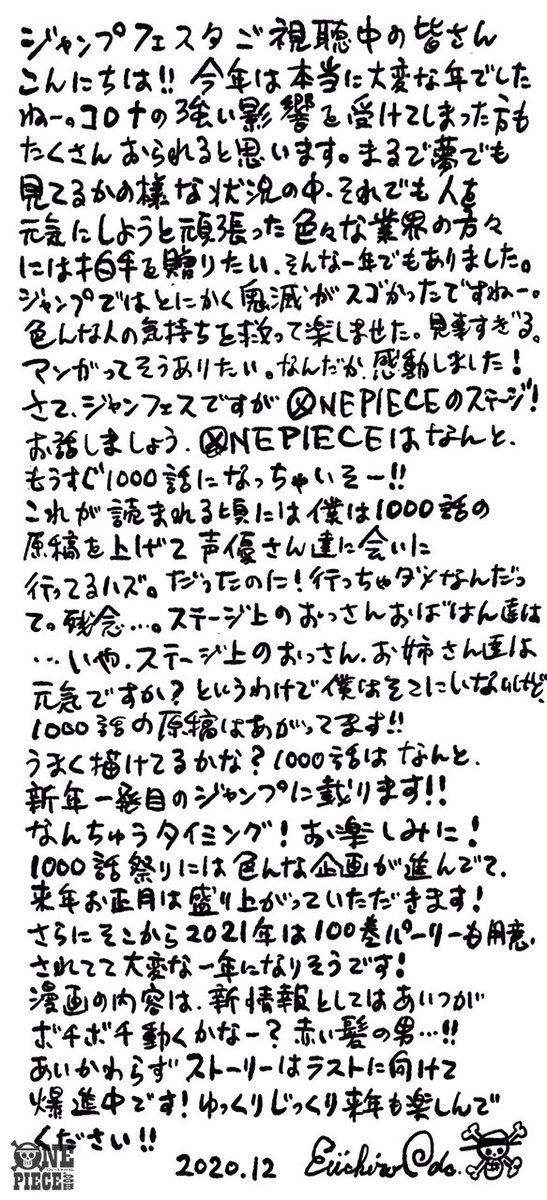 ジャンプフェスタご視聴中の皆さん
こんにちは!! 今年は本当に大変な年でした
ねー。コロナの強い影響を受けてしまった方も
たくさんおられると思います。まるで夢でも
見てるかの様な状況の中、それでも人を
元気にしようと頑張った色々な業界の方々
には拍手を贈りたい、そんな一年でもありました。
ジャンプではとにかく鬼滅がスゴかったですねー。
色んな人の気持ちを救って楽しませた。見事すぎる。
マンガってそうありたい。なんだか、感動しました!
さて、ジャンフェスですがONE PIECEのステージ!
お話しましょう、ONE PIECEはなんと、
もうすぐ1000話になっちゃいそー!!
これが読まれる頃には僕は1000話の
原稿を上げて声優さん達に会いに
行ってるハズ。だったのに!行っちゃダメなんだっ
て。残念…。ステージ上のおっさんおばはん達は
…いや、ステージ上のおっさん、お姉さん達は
元気ですか?というわけで僕はそこにいないけど、
1000話の原稿はあがってます!!
うまく描けてるかな?1000話は なんと、
新年一発目のジャンプに載ります!!
なんちゅうタイミング!お楽しみに!
1000話祭りには色んな企画が進んでて、
来年お正月は盛り上がっていただきます!
さらにそこから2021年は100巻パーリーも用意
されてて大変な一年になりそうです!
漫画の内容は、新情報としてはあいつが
ボチボチ動くかなー?赤い髪の男…!!
あいかわらずストーリーはラストに向けて
爆進中です!ゆっくりじっくり来年も楽しんで
ください!!
2020.12 Eiichiro Oda.
ONE
PIECE.COM